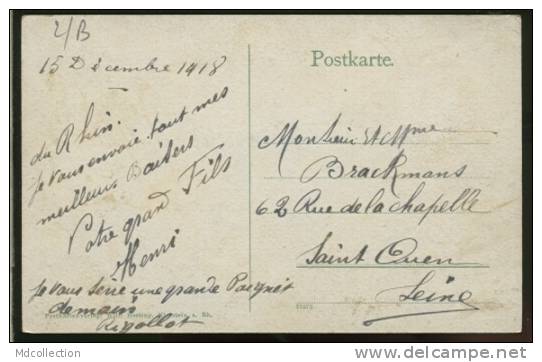 2/B
15 Décembre 1918
du Rhin.
je vous envoie tout mes
meilleurs Baisers
Votre grand Fils
Henri
je vous serie une grande Poignét
demain
Rigollot
Postkarte.
Monsieur et Mme
Brackmans
62 Rue de la chapelle
Saint Ouen
Seine
MDCollection
www.delcampe.net